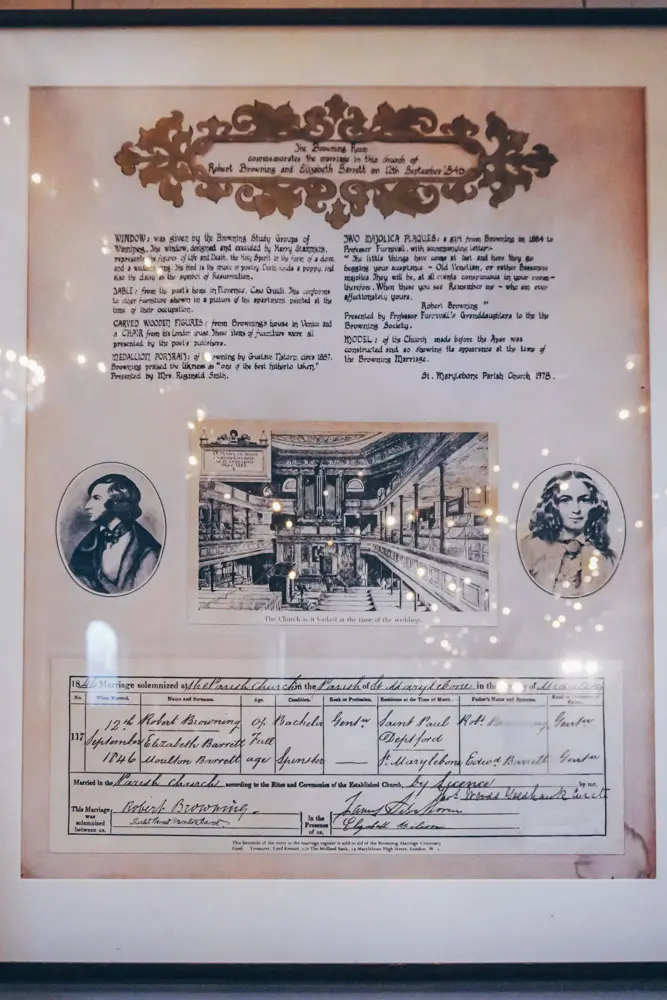 The Browning Room
commemorates the marriage in this church of
Robert Browning and Elizabeth Barrett on 12th September 1846
WINDOW: was given by the Browning Study Groups of
Winnipeg. The window, designed and executed by Harry Stammers,
represents the figures of Life and Death, the Holy Spirit in the form of a dove,
and a wedding ring. The bird is the music of poetry, Death holds a poppy, and
also the dawn as the symbol of Resurrection.
TABLE: from the poet's home in Florence, Casa Guidi. This conforms
to other furniture shown in a picture of the apartment painted at the
time of their occupation.
CARVED WOODEN FIGURES: from Browning's house in Venice and
a CHAIR from his London house. These items of furniture were all
presented by the poet's publishers.
MEDALLION PORTRAIT: of Browning by Gustav Natorp, circa 1887.
Browning praised the likeness as "one of the best hitherto taken."
Presented by Mrs. Reginald Smith.
TWO MAJOLICA PLAQUES: a gift from Browning in 1884 to
Professor Furnivall, with accompanying letter:-
"The little things have come at last and here they go
begging your acceptance - Old Venetian, or rather Bassanese
majolica. They will be, at all events conspicuous in your room -
therefore, When these you see Remember me - who am ever
affectionately yours,
Robert Browning"
Presented by Professor Furnivall's Granddaughters to the
Browning Society.
MODEL: of the Church made before the Apse was
constructed and so showing its appearance at the time of
the Browning Marriage.
St. Marylebone Parish Church 1978.
The Church as it looked at the time of the wedding.
1846 Marriage solemnized at the Parish Church in the Parish of St Marylebone in the of Middlesex
No. When Married. Name and Surname. Age. Condition. Rank or Profession. Residence at the Time of Marriage. Father's Name and Surname. Rank or Profession of Father.
117 12th September 1846 Robert Browning Of Full age Bachelor Gentn Saint Paul Deptford Robt Browning Gentn
Elizabeth Barrett Moulton Barrett Spinster — St. Marylebone Edwd Barrett Gentn
Married in the Parish Church according to the Rites and Ceremonies of the Established Church, by Licence by me,
This Marriage was solemnized between us, Robert Browning
In the Presence of us,
This facsimile of the entry in the marriage register is sold in aid of the Browning Marriage Centenary
Fund. Treasurer, Lord Kennet, c/o The Midland Bank, Marylebone High Street, London, W. 1